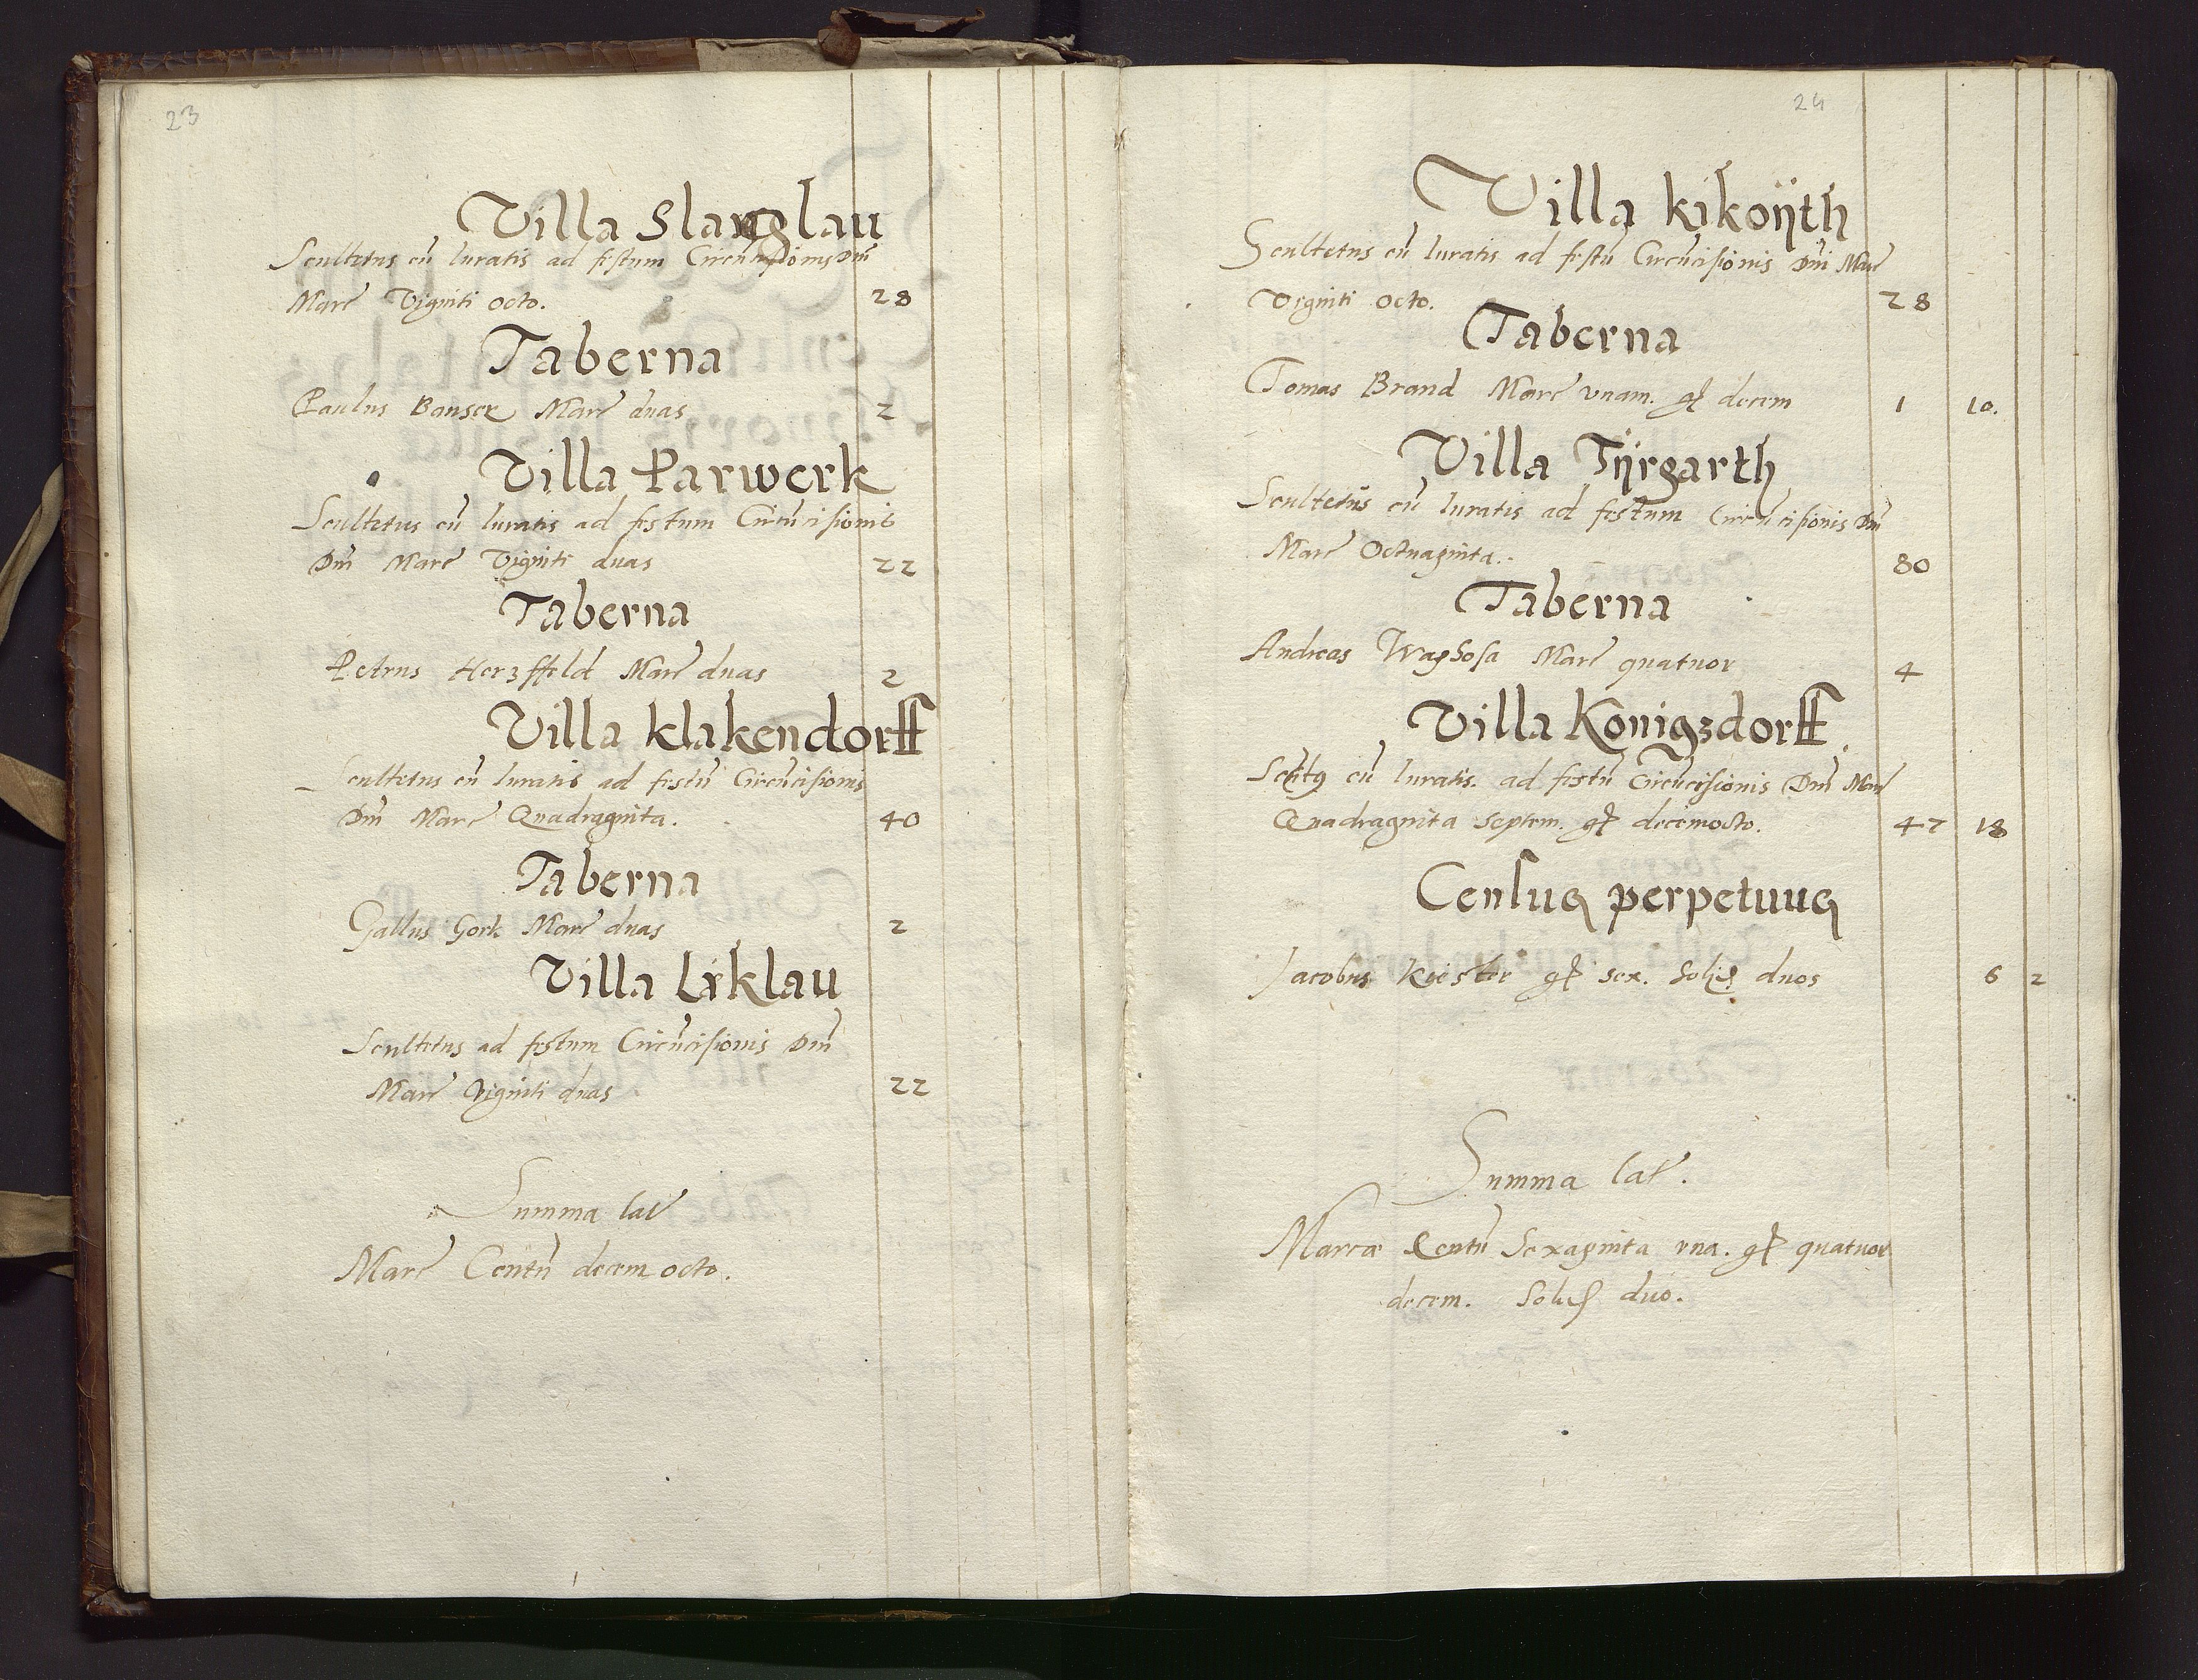 23
Villa Slanglau
Scultetus cū Iuratis ad festum Circūcisionis Dnī
Marc Viginti octo. 28
Taberna
Paulus Banser Marc duas 2
Villa Parwerk
Scultetus cū Iuratis ad festum Circūcisionis
Dnī Marc Viginti duas 22
Taberna
Petrus Herzffeld Marc duas 2
Villa klakendorff
Scultetus cū Iuratis ad festū Circūcisionis
Dnī Marc Quadraginta. 40
Taberna
Gallus Gork Marc duas 2
Villa Liklau
Scultetus ad festum Circūcisionis Dnī
Marc Viginti duas 22
Summa lat
Marc Centū decem octo.
24
Villa kikoijth
Scultetus cū Iuratis ad festū Circūcisionis Dnī Marc
Viginti octo. 28
Taberna
Tomas Brand Marc vnam. gɼ decem 1 10.
Villa Tijrgarth
Scultetus cū Iuratis ad festum Circūcisionis Dnī
Marc Octuaginta. 80
Taberna
Andreas Marc quatuor 4
Villa Konigsdorff
cū Iuratis. ad festū Circūcisionis Dnī Marc
Quadraginta septem. gɼ decemocto. 47 18
Census perpetuus
Jacobus Kiester gɼ sex. Solid duos 6 2
Summa lat.
Marcæ Centū Sexaginta vna. gɼ quatuor
decem. Solid duo.